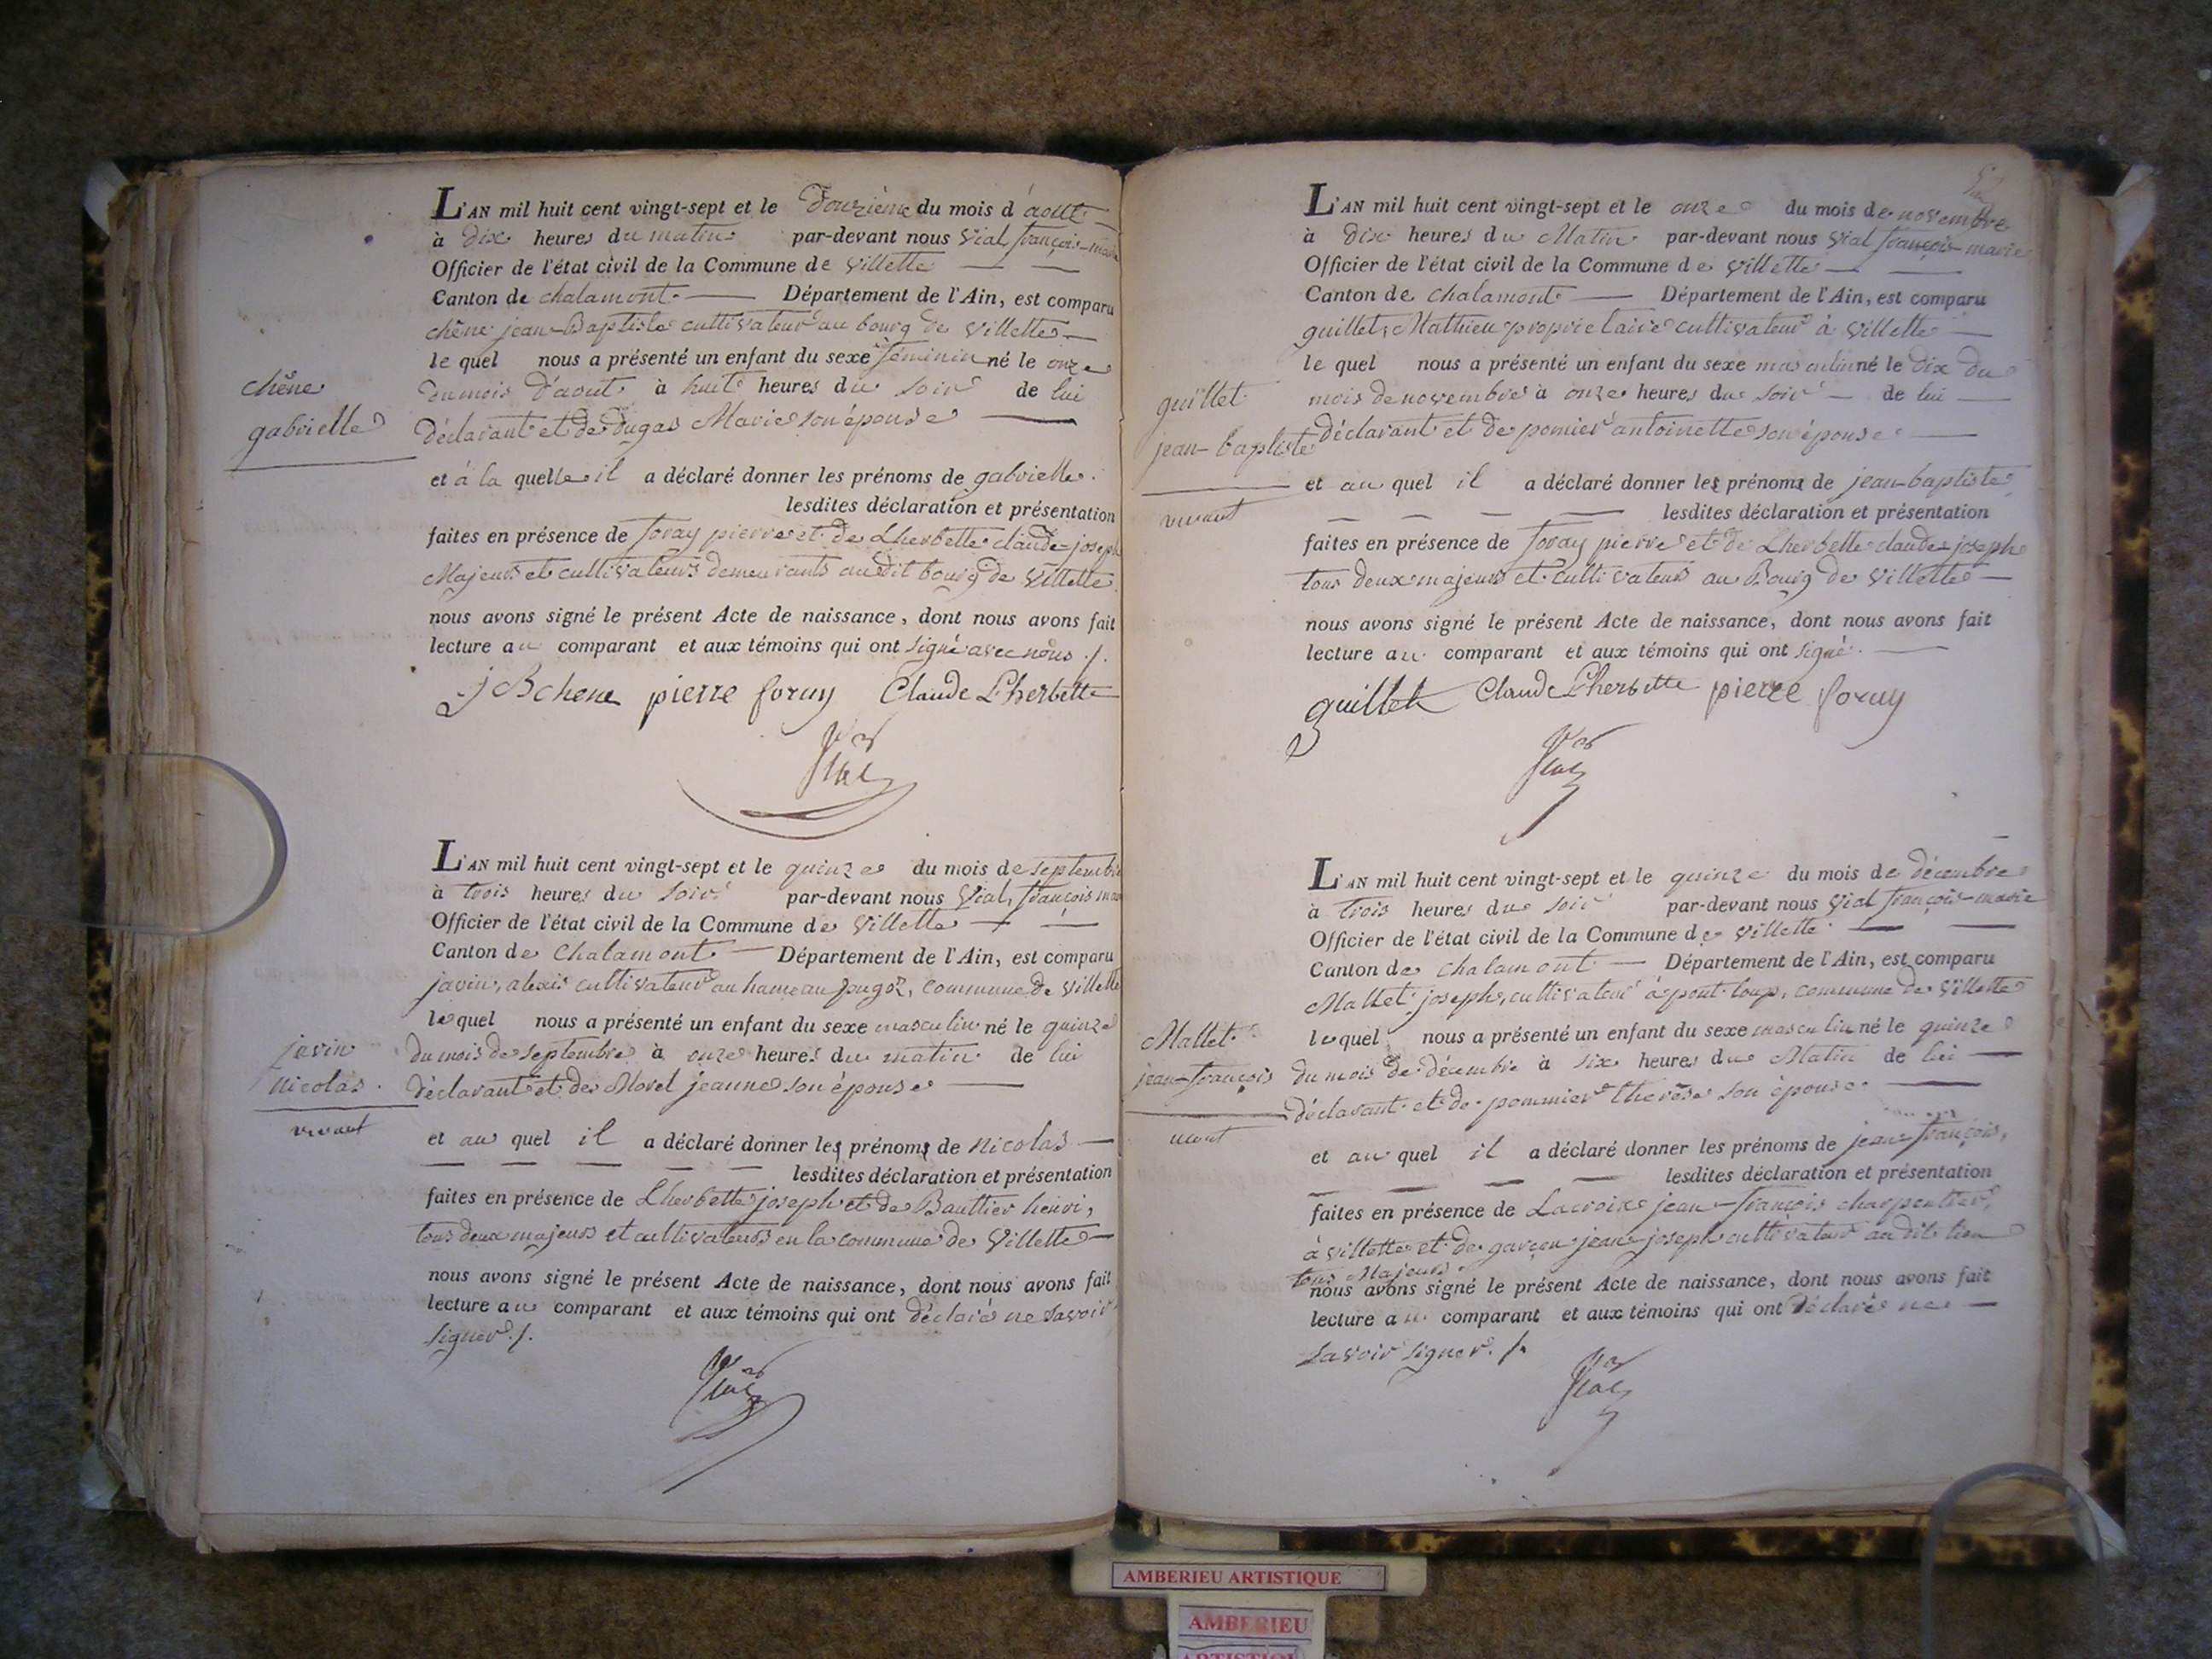 L'AN mil huit cent vingt-sept et le douzième du mois d'août
à dix heures du matin par-devant nous Vial, françois-marie
Officier de l'état civil de la Commune de Villette
Canton de chalamont Département de l'Ain, est comparu
chêne jean-Baptiste cultivateur au bourg de Villette
le quel nous a présenté un enfant du sexe féminin né le onze
du mois d'aout à huit heures du soir de lui
déclarant et de dugas Marie son épouse
chêne
gabrielle
et à la quelle il a déclaré donner les prénoms de gabrielle.
lesdites déclaration et présentation
faites en présence de foray pierre et de Lherbette claude-joseph
Majeurs et cultivateurs demeurants au dit bourg de Villette
nous avons signé le présent Acte de naissance, dont nous avons fait
lecture au comparant et aux témoins qui ont signé avec nous ./.
j B chene pierre foray Claude Lherbette
Vial
L'AN mil huit cent vingt-sept et le quinze du mois de septembre
à trois heures du soir par-devant nous Vial, françois mar
Officier de l'état civil de la Commune de Villette
Canton de Chalamont Département de l'Ain, est comparu
javin, alexis cultivateur au hameau , commune de Villette
le quel nous a présenté un enfant du sexe masculin né le quinze
du mois de septembre à onze heures du matin de lui
déclarant et de Morel jeanne son épouse
javin
nicolas.
vivant
et au quel il a déclaré donner les prénoms de nicolas
lesdites déclaration et présentation
faites en présence de Lherbette joseph et de Bauttier henri,
tous deux majeurs et cultivateurs en la commune de Villette
nous avons signé le présent Acte de naissance, dont nous avons fait
lecture au comparant et aux témoins qui ont déclaré ne savoir
signer ./.
Vial
L'AN mil huit cent vingt-sept et le onze du mois de novembre
à dix heures du Matin par-devant nous Vial françois-marie
Officier de l'état civil de la Commune de Villette
Canton de Chalamont Département de l'Ain, est comparu
guillet, Mathieu propriétaire cultivateur à Villette
le quel nous a présenté un enfant du sexe masculin né le dix du
mois de novembre à onze heures du soir de lui
déclarant et de pomier antoinette son épouse
guillet
jean-baptiste
vivant
et au quel il a déclaré donner les prénoms de jean-baptiste
lesdites déclaration et présentation
faites en présence de foray pierre et de Lherbette claude-joseph
tous deux majeurs et cultivateurs au Bourg de Villette
nous avons signé le présent Acte de naissance, dont nous avons fait
lecture au comparant et aux témoins qui ont signé.
guillet Claude Lherbette pierre foray
Vial
L'AN mil huit cent vingt-sept et le quinze du mois de décembre
à trois heures du soir par-devant nous Vial françois-marie
Officier de l'état civil de la Commune de Villette
Canton de chalamont Département de l'Ain, est comparu
Mallet joseph, cultivateur à pont-loup, commune de Villette
le quel nous a présenté un enfant du sexe masculin né le quinze
du mois de décembre à six heures du Matin de lui
déclarant et de pommier thérèse son épouse
Mallet
jean-françois
mort
et au quel il a déclaré donner les prénoms de jean-françois,
lesdites déclaration et présentation
faites en présence de Lacroix jean-françois charpentier
à villette et de garçon jean-joseph cultivateur au dit lieu
tous Majeurs
nous avons signé le présent Acte de naissance, dont nous avons fait
lecture au comparant et aux témoins qui ont déclaré ne
savoir signer. /.
Vial
AMBERIEU ARTISTIQUE
AMBERIEU
ARTISTIQU